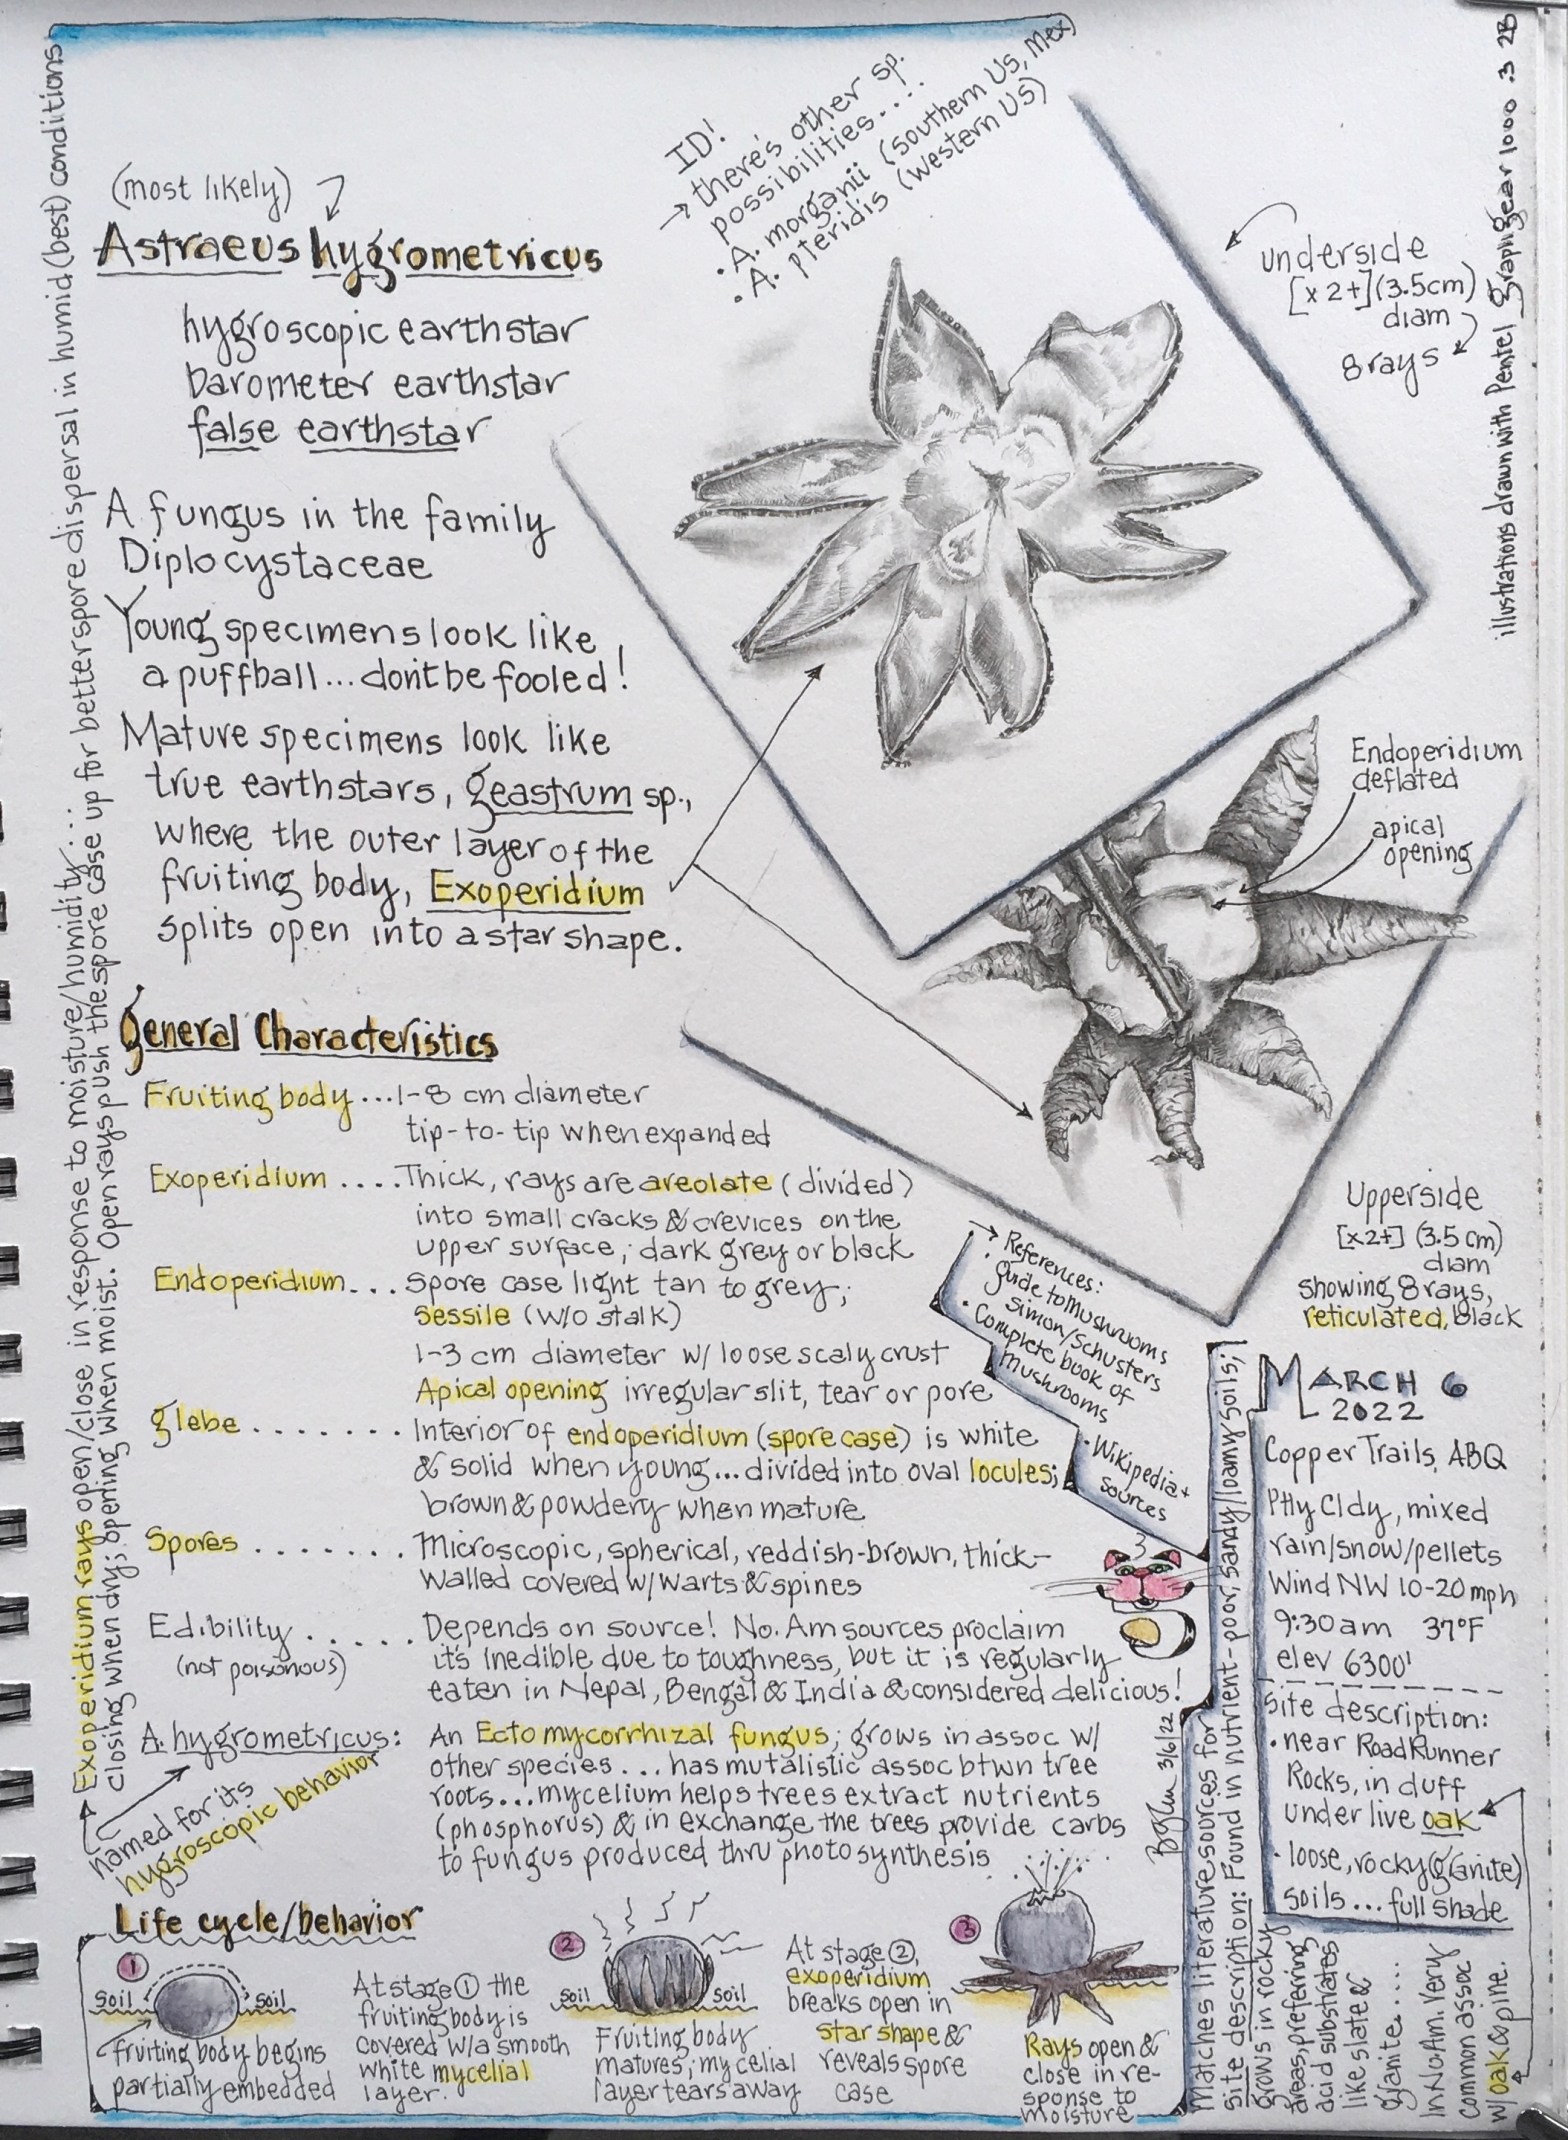 (most likely)
Astraeus hygrometricus
hygroscopic earthstar
barometer earthstar
false earthstar
A fungus in the family
Diplocystaceae
Young specimens look like
a puffball...don't be fooled!
Mature specimens look like
true earthstars, geastrum sp.,
where the outer layer of the
fruiting body, Exoperidium
splits open into a star shape.
ID!
→ there's other sp.
possibilities....
• A. morganii (southern US, Mex)
• A. pteridis (western US)
underside
[x 2+] (3.5cm)
diam
8 rays
illustrations drawn with Pentel Graphgear 1000 .3 2B
Endoperidium
deflated
apical
opening
Upperside
[x2+] (3.5 cm)
diam
showing 8 rays,
reticulated, black
General Characteristics
Fruiting body...1-8 cm diameter
tip-to-tip when expanded
Exoperidium....Thick, rays are areolate (divided)
into small cracks & crevices on the
upper surface; dark grey or black
Endoperidium... spore case light tan to grey;
sessile (w/o stalk)
1-3 cm diameter w/ loose scaly crust
Apical opening irregular slit, tear or pore
glebe ....... Interior of endoperidium (spore case) is white
& solid when young...divided into oval locules;
brown & powdery when mature
Spores ....... Microscopic, spherical, reddish-brown, thick-
walled covered w/warts & spines
Edibility ..... Depends on source! No. Am sources proclaim
(not poisonous)
it's inedible due to toughness, but it is regularly
eaten in Nepal, Bengal & India & considered delicious!
A. hygrometricus: An Ectomycorrhizal fungus; grows in assoc w/
other species... has mutalistic assoc btwn tree
roots...mycelium helps trees extract nutrients
(phosphorus) & in exchange the trees provide carbs
to fungus produced thru photosynthesis
named for its
hygroscopic behavior
Exoperidium rays open/close in response to moisture/humidity...
closing when dry; opening when moist. Open rays push the spore case up for better spore dispersal in humid (best) conditions
→ References:
• Guide to Mushrooms
Simon/Schusters
• Complete book of
Mushrooms
• Wikipedia+
sources
March 6
2022
Copper Trails, ABQ
Ptly Cldy, mixed
rain/snow/pellets
Wind NW 10-20 mph
9:30am 37°F
elev 6300'
Site description:
• near RoadRunner
Rocks, in duff
under live oak
• loose, rocky (granite)
soils...full shade
Matches literature sources for
site description: Found in nutrient-poor, sandy/loamy soils;
grows in rocky
areas, prefering
acid substrates
like slate &
granite....
In No. Am. Very
common assoc
w/ oak & pine.
3/6/22
Life cycle/behavior
1
soil
soil
fruiting body begins
partially embedded
At stage ① the
fruiting body is
covered w/a smooth
white mycelial
layer.
2
soil
soil
Fruiting body
matures; mycelial
layer tears away
At stage ②,
exoperidium
breaks open in
star shape &
reveals spore
case
3
Rays open &
close in re-
sponse to
moisture